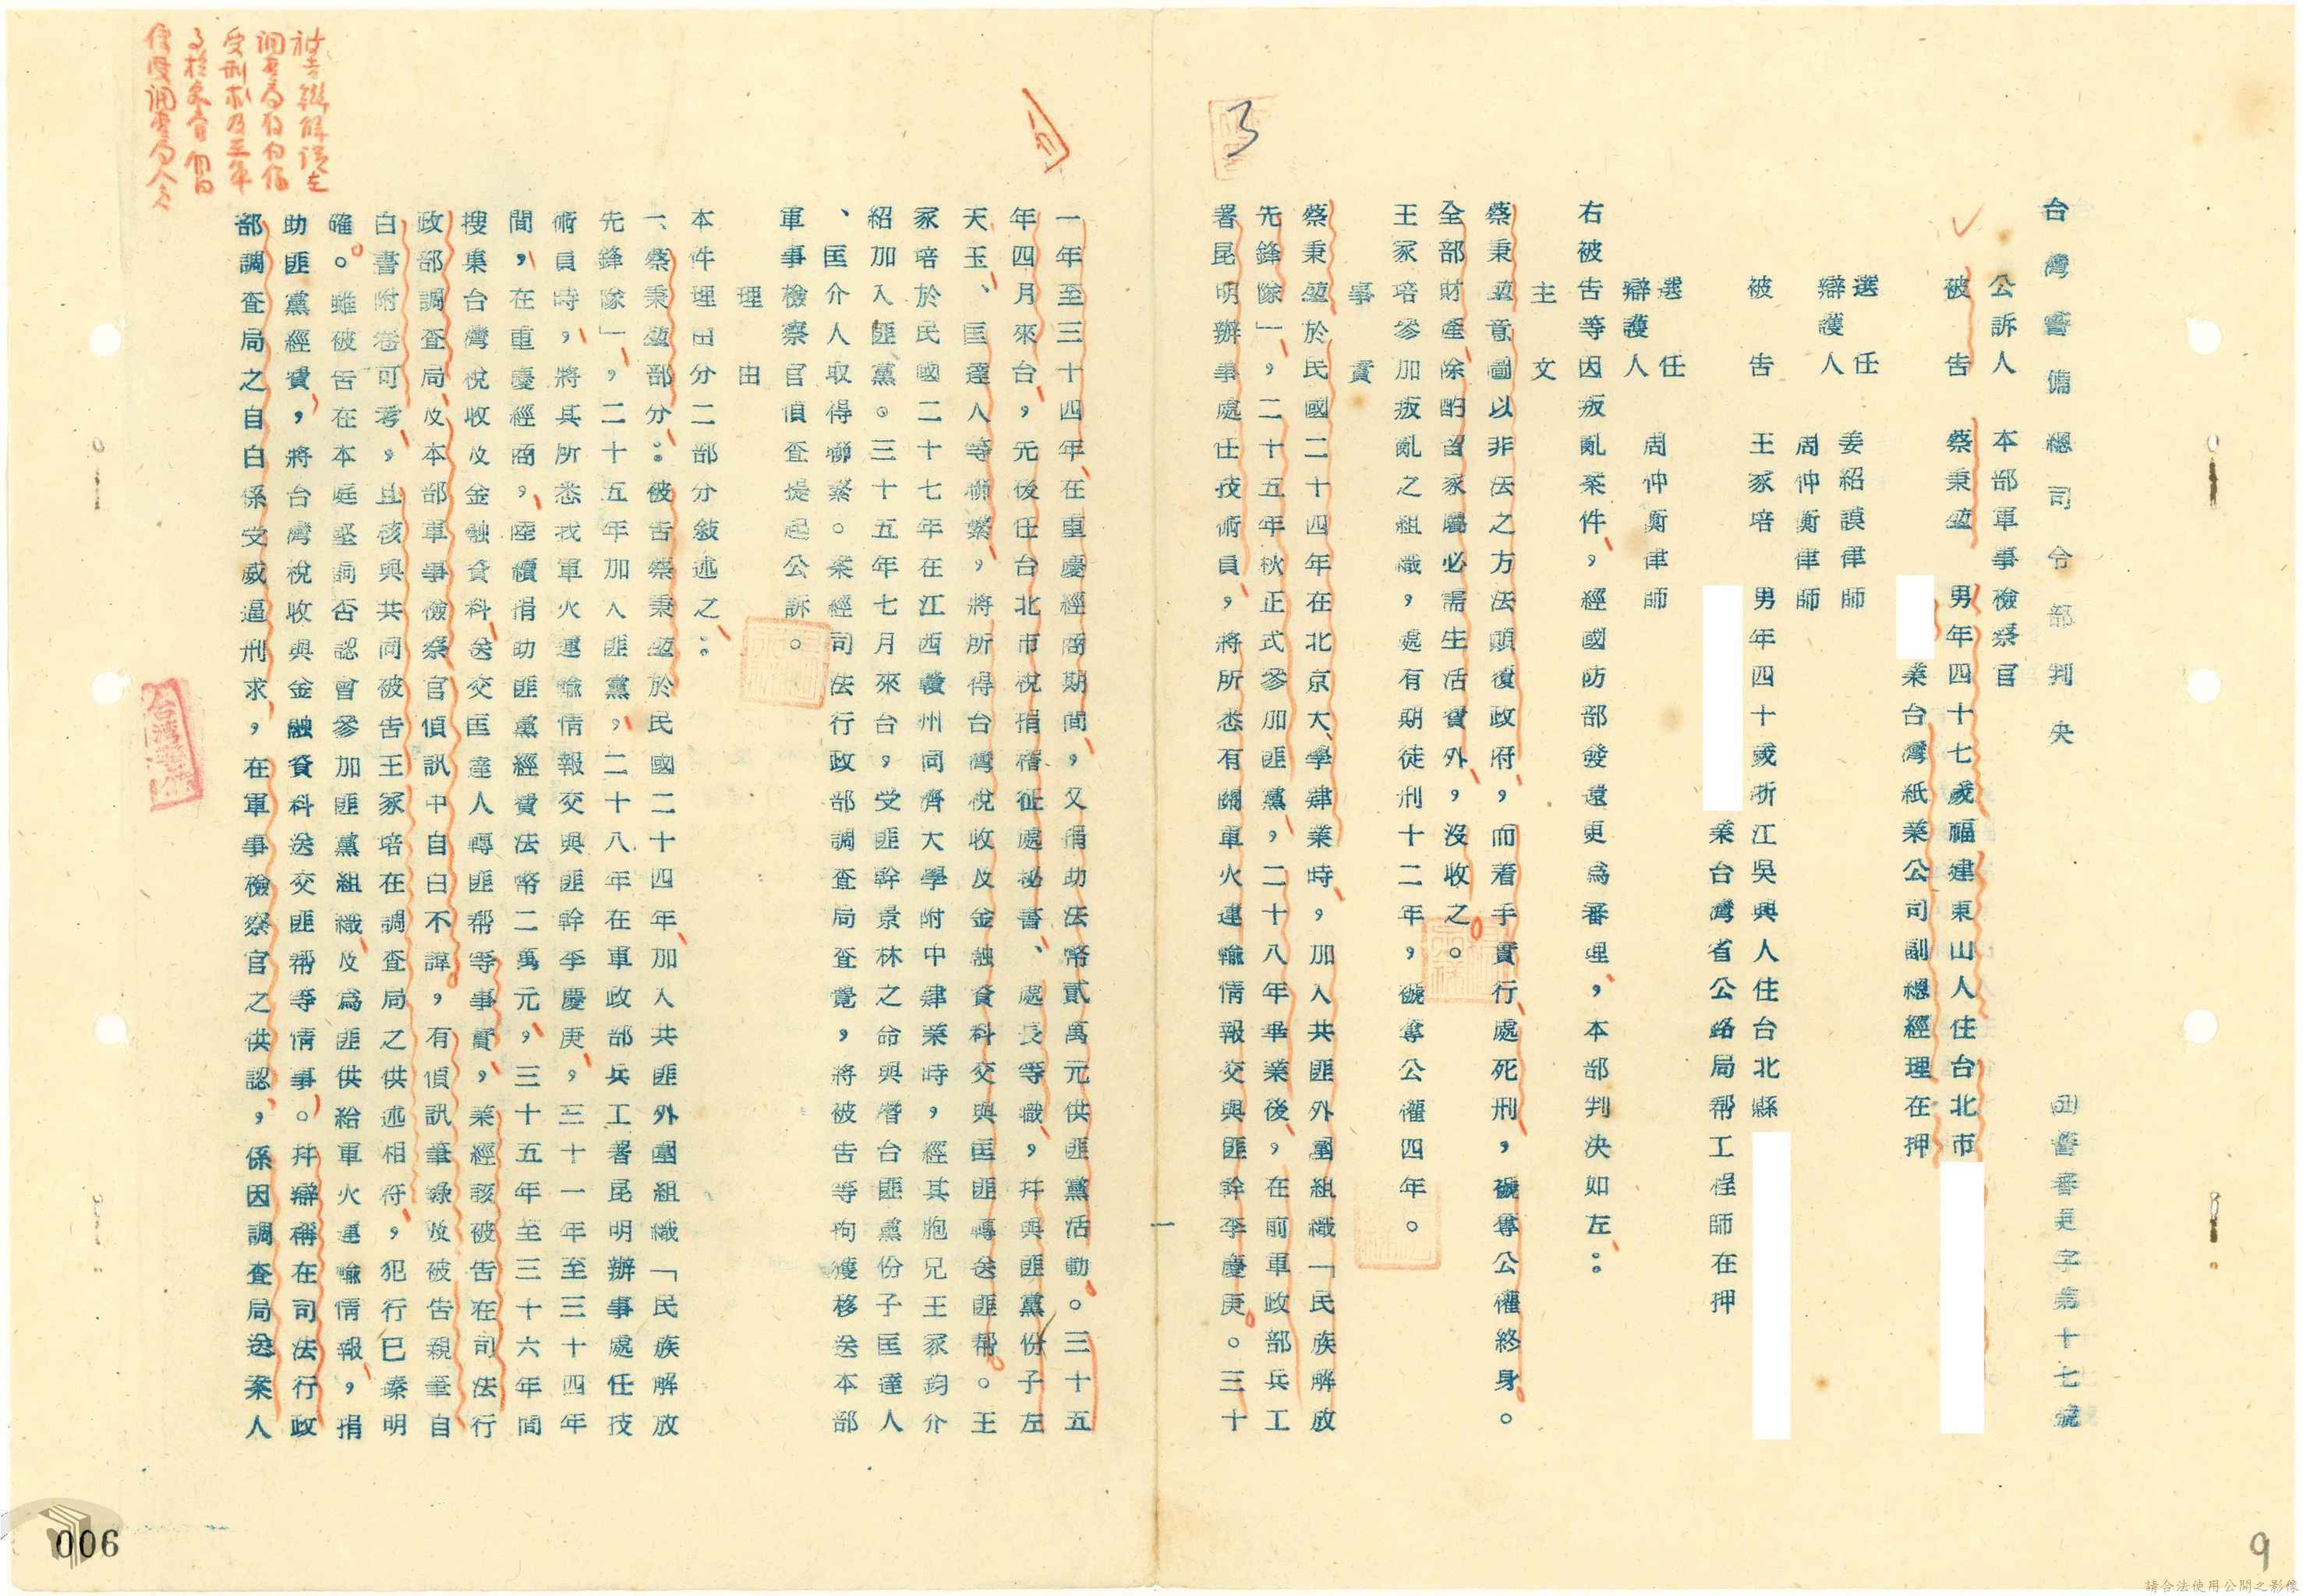 台灣警備總司令部判決
警審更字第十七號
公訴人 本部軍事檢察官
被告 蔡秉堃 男年四十七歲福建東山人住台北市
業台灣紙業公司副總經理在押
選任
辯護人 姜紹謨律師
周仲衡律師
被告 王家培 男年四十歲浙江吳興人住台北縣
業台灣省公路局帮工程師在押
選任
辯護人 周仲衡律師
右被告等因叛亂案件，經國防部發還更為審理，本部判決如左：
主文
蔡秉堃意圖以非法之方法顛復政府，而着手實行處死刑，褫奪公權終身。
全部財產除酌留家屬必需生活費外，沒收之。
王家培參加叛亂之組織，處有期徒刑十二年，褫奪公權四年。
事實
蔡秉堃於民國二十四年在北京大學肄業時，加入共匪外圍組織「民族解放
先鋒隊」，二十五年秋正式參加匪黨，二十八年畢業後，在前軍政部兵工
署昆明辦事處任技術員，將所悉有關軍火運輸情報交與匪幹李慶庚。三十
一
一年至三十四年在重慶經商期間，又捐助法幣貳萬元供匪黨活動。三十五
年四月來台，先後任台北市稅捐稽征處秘書、處長等職，并與匪黨份子左
天玉、匡達人等聯繫，將所得台灣稅收及金融資料交與匡匪轉送匪帮。王
家培於民國二十七年在江西贛州同濟大學附中肄業時，經其胞兄王家鈞介
紹加入匪黨。三十五年七月來台，受匪幹景林之命與潛台匪黨份子匡達人
、匡介人取得聯繫。案經司法行政部調查局查覺，將被告等拘獲移送本部
軍事檢察官偵查提起公訴。
理由
本件理由分二部分敘述之：
一、蔡秉堃部分：被告蔡秉堃於民國二十四年加入共匪外圍組織「民族解放
先鋒隊」，二十五年加入匪黨，二十八年在軍政部兵工署昆明辦事處任技
術員時，將其所悉我軍火運輸情報交與匪幹李慶庚，三十一年至三十四年
間，在重慶經商，陸續捐助匪黨經費法幣二萬元，三十五年至三十六年間
搜集台灣稅收及金融資料送交匡達人轉匪帮等事實，業經該被告在司法行
政部調查局及本部軍事檢察官偵訊中自白不諱，有偵訊筆錄及被告親筆自
白書附卷可考，且核與共同被告王家培在調查局之供述相符，犯行已臻明
確。雖被告在本庭堅詞否認曾參加匪黨組織及為匪供給軍火運輸情報，捐
助匪黨經費，將台灣稅收與金融資料送交匪帮等情事。并辯稱在司法行政
部調查局之自白係受威逼刑求，在軍事檢察官之供認，係因調查局送案人
被告辯解謂在
調查局
受刑
台灣
3
006
9
請合法使用公開之影像